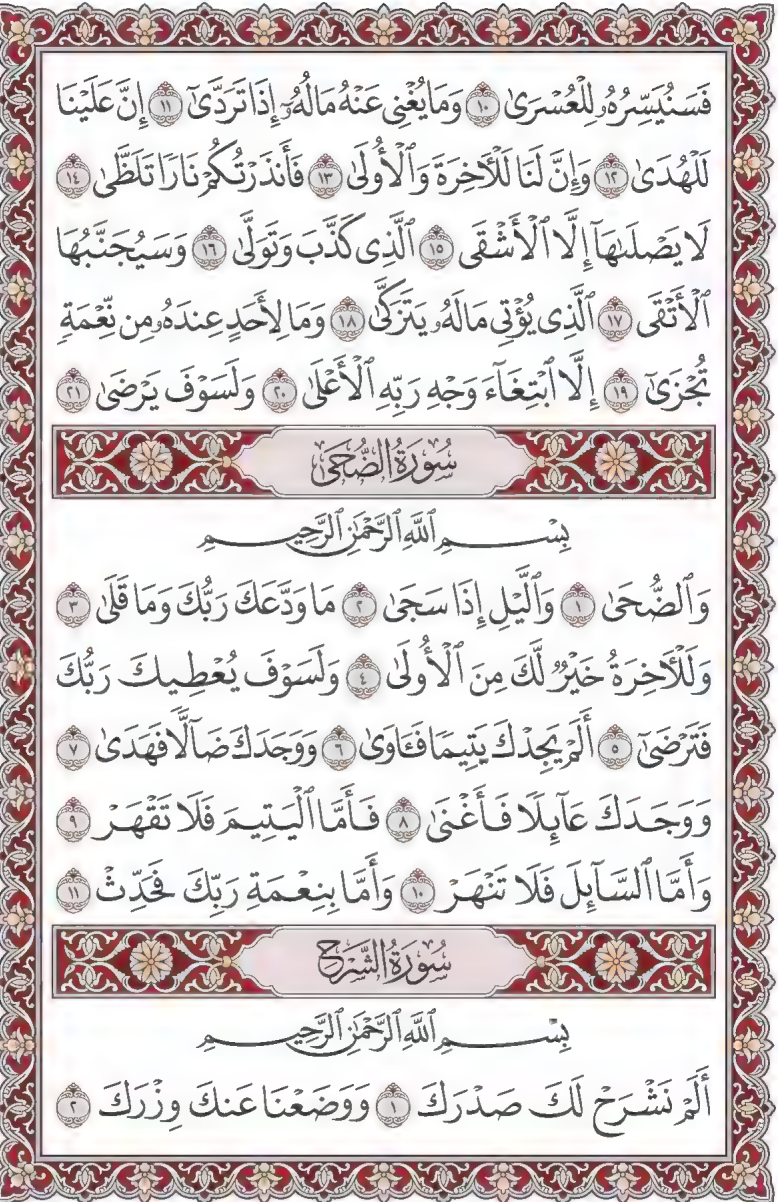 فَسَنُيَسِّرُهُۥ لِلْعُسْرَىٰ ١٠ وَمَا يُغْنِى عَنْهُ مَالُهُۥٓ إِذَا تَرَدَّىٰٓ ١١ إِنَّ عَلَيْنَا
لَلْهُدَىٰ ١٢ وَإِنَّ لَنَا لَلْـَٔاخِرَةَ وَٱلْأُولَىٰ ١٣ فَأَنذَرْتُكُمْ نَارًا تَلَظَّىٰ ١٤
لَا يَصْلَىٰهَآ إِلَّا ٱلْأَشْقَى ١٥ ٱلَّذِى كَذَّبَ وَتَوَلَّىٰ ١٦ وَسَيُجَنَّبُهَا
ٱلْأَتْقَى ١٧ ٱلَّذِى يُؤْتِى مَالَهُۥ يَتَزَكَّىٰ ١٨ وَمَا لِأَحَدٍ عِندَهُۥ مِن نِّعْمَةٍ
تُجْزَىٰٓ ١٩ إِلَّا ٱبْتِغَآءَ وَجْهِ رَبِّهِ ٱلْأَعْلَىٰ ٢٠ وَلَسَوْفَ يَرْضَىٰ ٢١
سُورَةُ الضُّحَى
بِسْمِ ٱللَّهِ ٱلرَّحْمَٰنِ ٱلرَّحِيمِ
وَٱلضُّحَىٰ ١ وَٱلَّيْلِ إِذَا سَجَىٰ ٢ مَا وَدَّعَكَ رَبُّكَ وَمَا قَلَىٰ ٣
وَلَلْـَٔاخِرَةُ خَيْرٌ لَّكَ مِنَ ٱلْأُولَىٰ ٤ وَلَسَوْفَ يُعْطِيكَ رَبُّكَ
فَتَرْضَىٰٓ ٥ أَلَمْ يَجِدْكَ يَتِيمًا فَـَٔاوَىٰ ٦ وَوَجَدَكَ ضَآلًّا فَهَدَىٰ ٧
وَوَجَدَكَ عَآئِلًا فَأَغْنَىٰ ٨ فَأَمَّا ٱلْيَتِيمَ فَلَا تَقْهَرْ ٩
وَأَمَّا ٱلسَّآئِلَ فَلَا تَنْهَرْ ١٠ وَأَمَّا بِنِعْمَةِ رَبِّكَ فَحَدِّثْ ١١
سُورَةُ الشَّرْحِ
بِسْمِ ٱللَّهِ ٱلرَّحْمَٰنِ ٱلرَّحِيمِ
أَلَمْ نَشْرَحْ لَكَ صَدْرَكَ ١ وَوَضَعْنَا عَنكَ وِزْرَكَ ٢